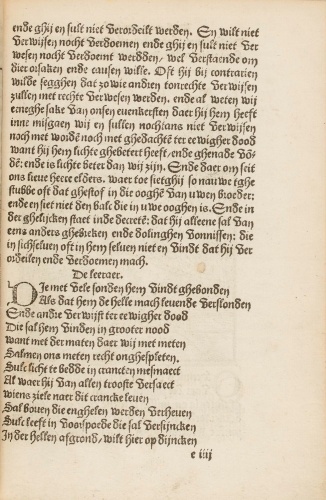 ende ghij en sult niet veroꝛdeilt werden. En wilt niet
verwijsen nocht verdoemen ende ghij en sult niet ver
wesen nocht verdoemt werdden, wel verstaende om
dier oꝛsaken ende causen wille. Oft hij bij contrarien
wilde segghen dat so wie andren tonrechte verwijsen
zullen met rechte verwesen werden. ende al weten wij
eenieghe sake van onsen euenkersten daer hij hem heeft
inne misgaen wij en sullen nochtans niet verwijsen
noch met woꝛde noch met ghedachte ter eewigher dood
want hij hem lichte ghebetert heeft, ende ghenade vō-
dē: ende is lichte beter dan wij zijn. Ende daer om seit
ons lieue heere elders. waer toe siet ghij so nauwe tghe
stubbe oft dat ghestof in die ooghē van uwen bꝛoeder:
ende en siet niet den balc die in uwe ooghen is. Ende in
der ghelijcken staet inde decretē: dat hij alleene sal van
eens anders ghebꝛeken ende dolinghen vonnissen: die
in sich seluen oft in hem seluen niet en vindt dat hij ver
oꝛdeilen ende verdoemen mach.
De leeraer.
DJe met vele sonden hem vindt ghebonden
Als dat hem de helle mach leuende verslonden
Ende andꝛe verwijst ter eewigher dood
Die sal hem vinden in grooter nood
want met der maten daer wij met meten
Salmen ons meten recht onghespleten.
Sulc licht te bedde in crancten mesmaect
Al waer hij van allen trooste versaect
wiens ziele naer dit crancke leuen
Sal bouen die enghelen werden verheuen
Sulc leeft in vooꝛspoede die sal versijncken
Jn der hellen afgrond, wilt hier op dijncken
e iiij